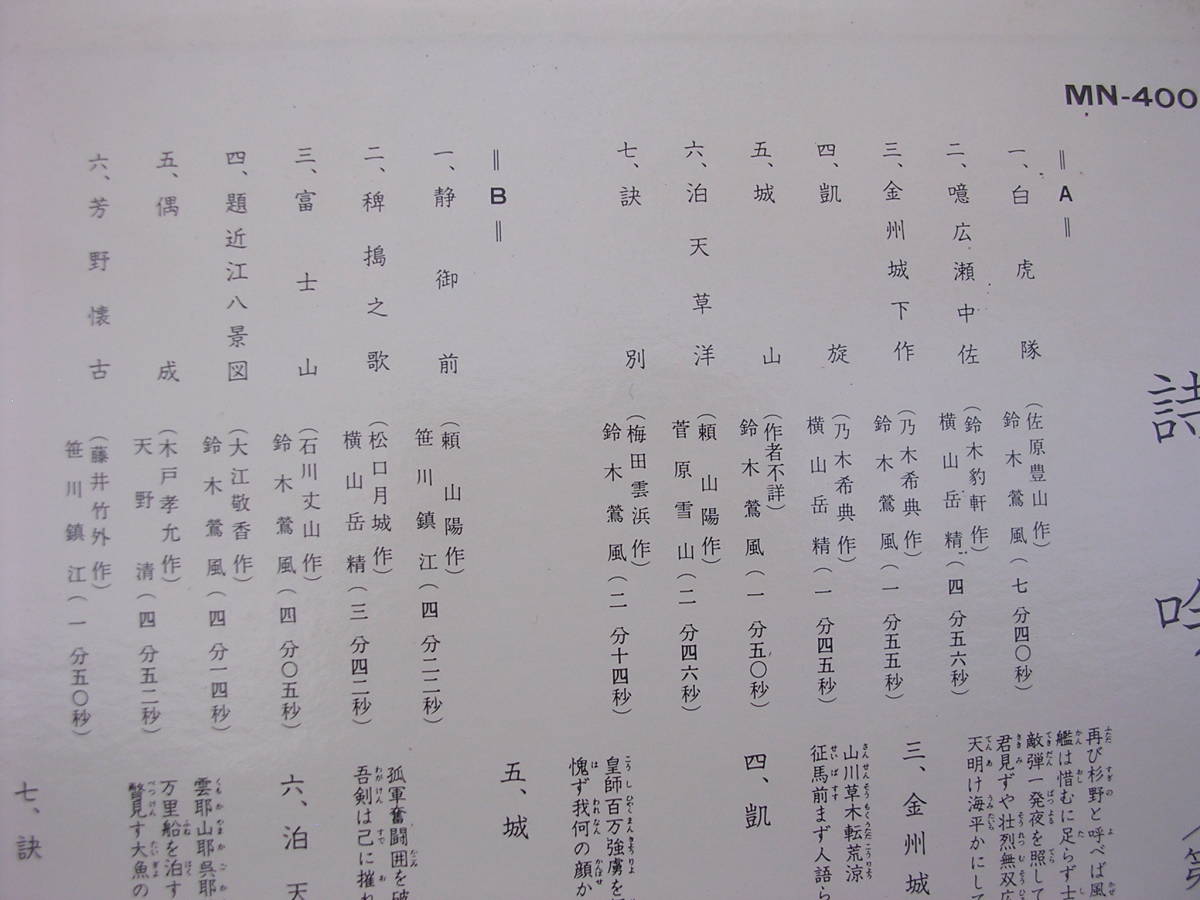 MN-400
詩吟
＝A＝
一、白虎隊 (佐原豊山作) 鈴木鶯風 (七分四〇秒)
二、噫広瀬中佐 (鈴木豹軒作) 横山岳精 (四分五六秒)
三、金州城下作 (乃木希典作) 鈴木鶯風 (一分五五秒)
四、凱旋 (乃木希典作) 横山岳精 (一分四五秒)
五、城山 (作者不詳) 鈴木鶯風 (一分五〇秒)
六、泊天草洋 (頼山陽作) 菅原雪山 (二分四六秒)
七、訣別 (梅田雲浜作) 鈴木鶯風 (二分十四秒)
＝B＝
一、静御前 (頼山陽作) 笹川鎮江 (四分二二秒)
二、稗搗之歌 (松口月城作) 横山岳精 (三分四二秒)
三、富士山 (石川丈山作) 鈴木鶯風 (四分〇五秒)
四、題近江八景図 (大江敬香作) 鈴木鶯風 (四分一四秒)
五、偶成 (木戸孝允作) 天野清 (四分五二秒)
六、芳野懐古 (藤井竹外作) 笹川鎮江 (一分五〇秒)
再び杉野と呼べば風
艦は惜むに足らず士
敵弾一発夜を照して
君見ずや壮烈無双広
天明け海平かにして
三、金州城
山川草木転荒涼
征馬前まず人語ら
四、凱
皇師百万強虜を
愧ず我何の顔か
五、城
孤軍奮闘囲を破
吾剣は己に摧れ
六、泊天
雲耶山耶呉耶
万里船を泊す
瞥見す大魚の
七、訣